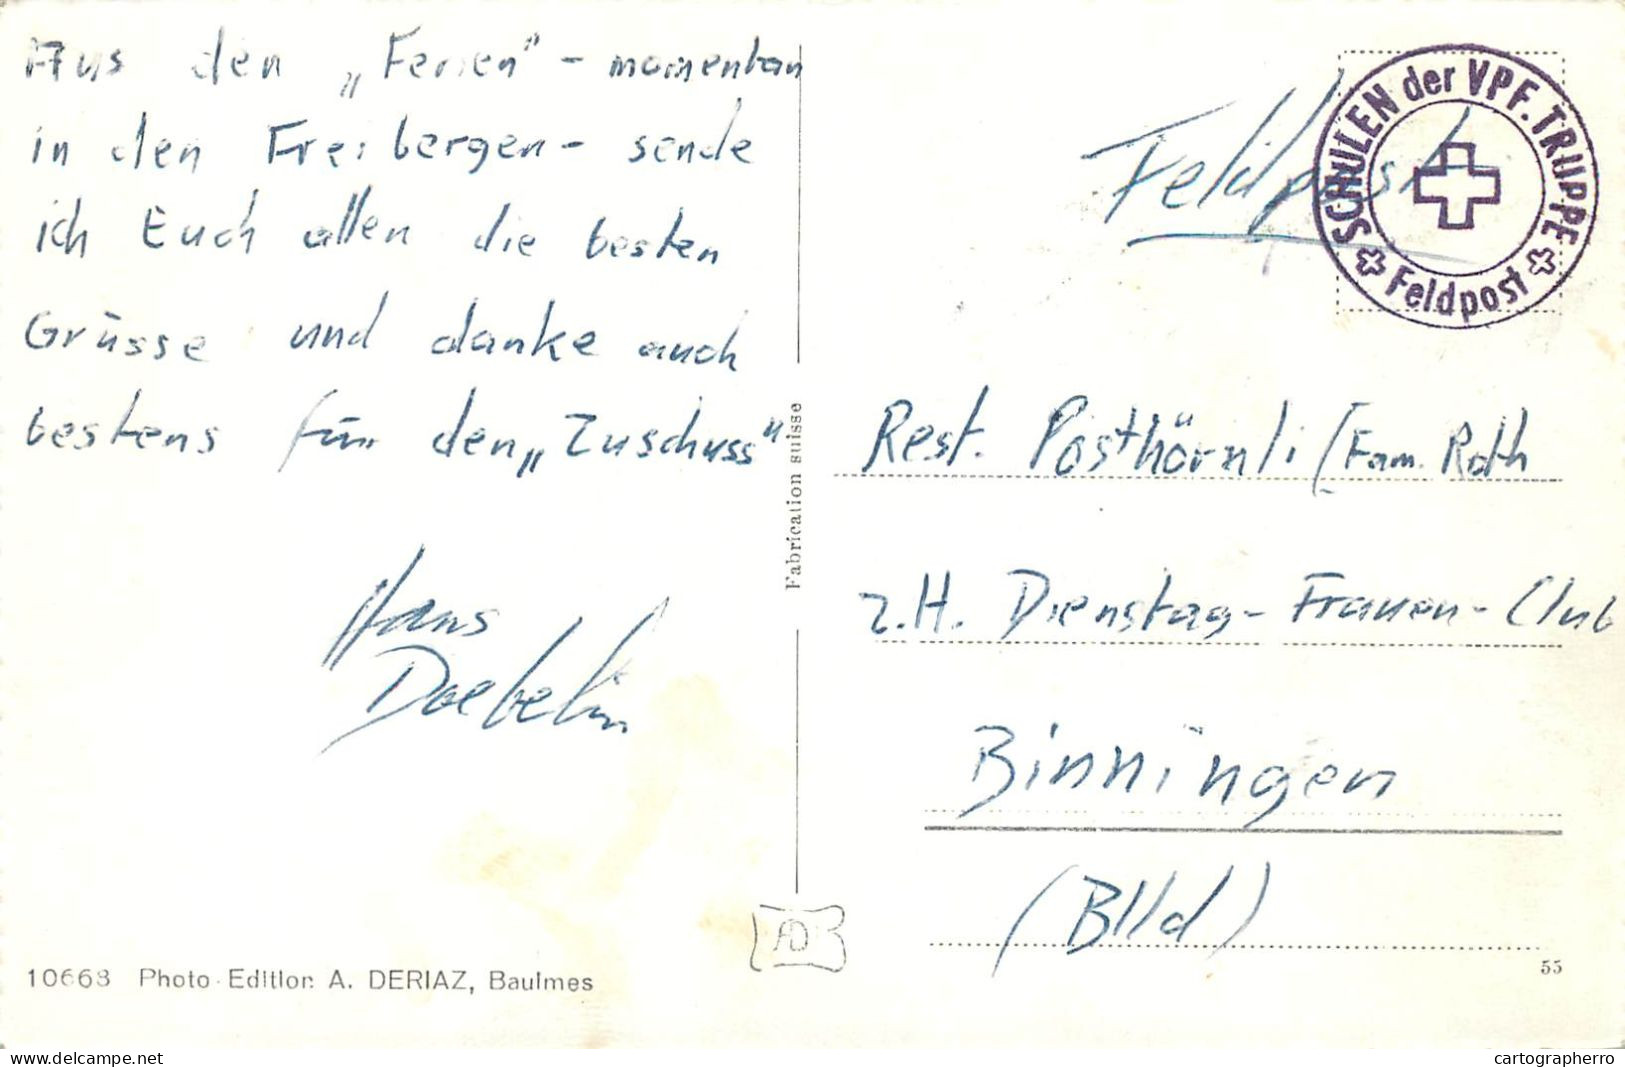 Aus den „Ferien" - momentan
in den Freibergen - sende
ich Euch allen die besten
Grüsse und danke auch
bestens für den „Zuschuss"
Hans
Doebelin
10668 Photo Edition A. DERIAZ, Baulmes
Fabrication suisse
AD
Feldpost
SCHULEN der VPF. TRUPPE
Feldpost
Rest. Posthörnli (Fam. Roth
z.H. Dienstag-Frauen-Club
Binningen
(Blld)
55
cartographerro